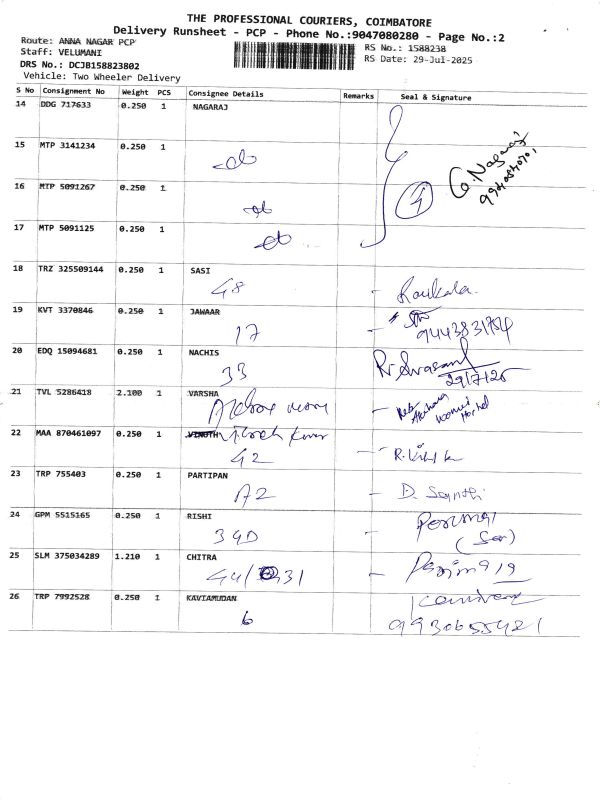 THE PROFESSIONAL COURIERS, COIMBATORE
Delivery Runsheet - PCP - Phone No.:9047080280 - Page No.:2
Route: ANNA NAGAR PCP
RS No.: 1588238
Staff: VELUMANI
RS Date: 29-Jul-2025
DRS No.: DCJB158823802
Vehicle: Two Wheeler Delivery
S No Consignment No Weight PCS Consignee Details Remarks Seal & Signature
14 DDG 717633 0.250 1 NAGARAJ
G. Nagaraj
15 MTP 3141234 0.250 1
do
4
16 MTP 5091267 0.250 1
do
17 MTP 5091125 0.250 1
do
18 TRZ 325509144 0.250 1 SASI
48
19 KVT 3370846 0.250 1 JAWAAR
17 9443831754
20 EDQ 15094681 0.250 1 NACHIS
33 29/7/25
21 TVL 5286418 2.100 1 VARSHA
22 MAA 870461097 0.250 1 VINOTH
42
23 TRP 755403 0.250 1 PARTIPAN
A2
24 GPM 5515165 0.250 1 RISHI
39D
25 SLM 375034289 1.210 1 CHITRA
44/ 31
26 TRP 7992528 0.250 1 KAVIAMUDAN
6 9930655421